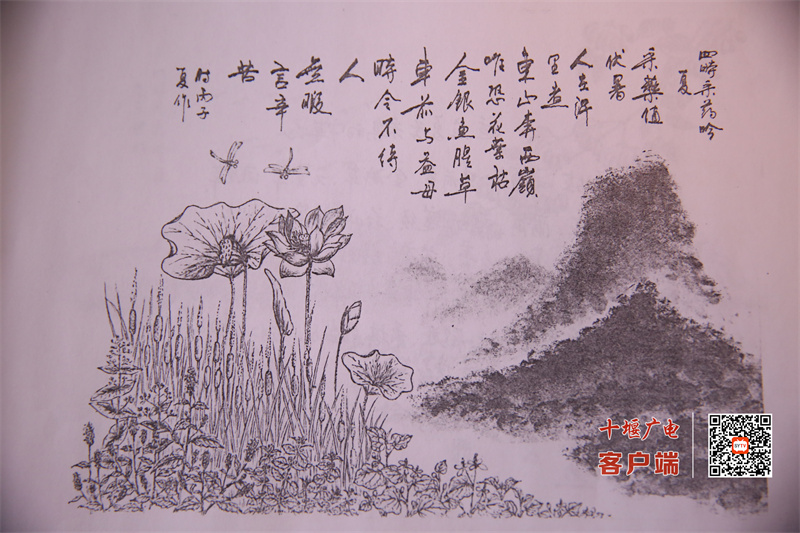 四時采药吟
夏
采藥值
伏暑
人
里煮
東山奔西嶺
唯恐花葉枯
金銀魚腥草
車前与益母
時令不待
人
無暇
言辛
苦
时丙子
夏作
十堰广电
客户端
SYTV